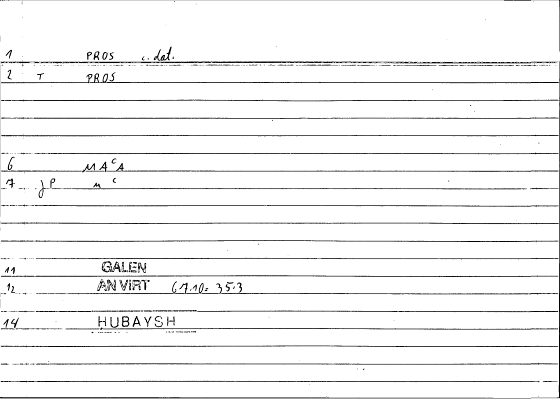 1 PROS c. dat.
2 T PROS
6 MACA
7 JP M C
11 GALEN
12 AN VIRT 67.10: 353
14 HUBAYSH